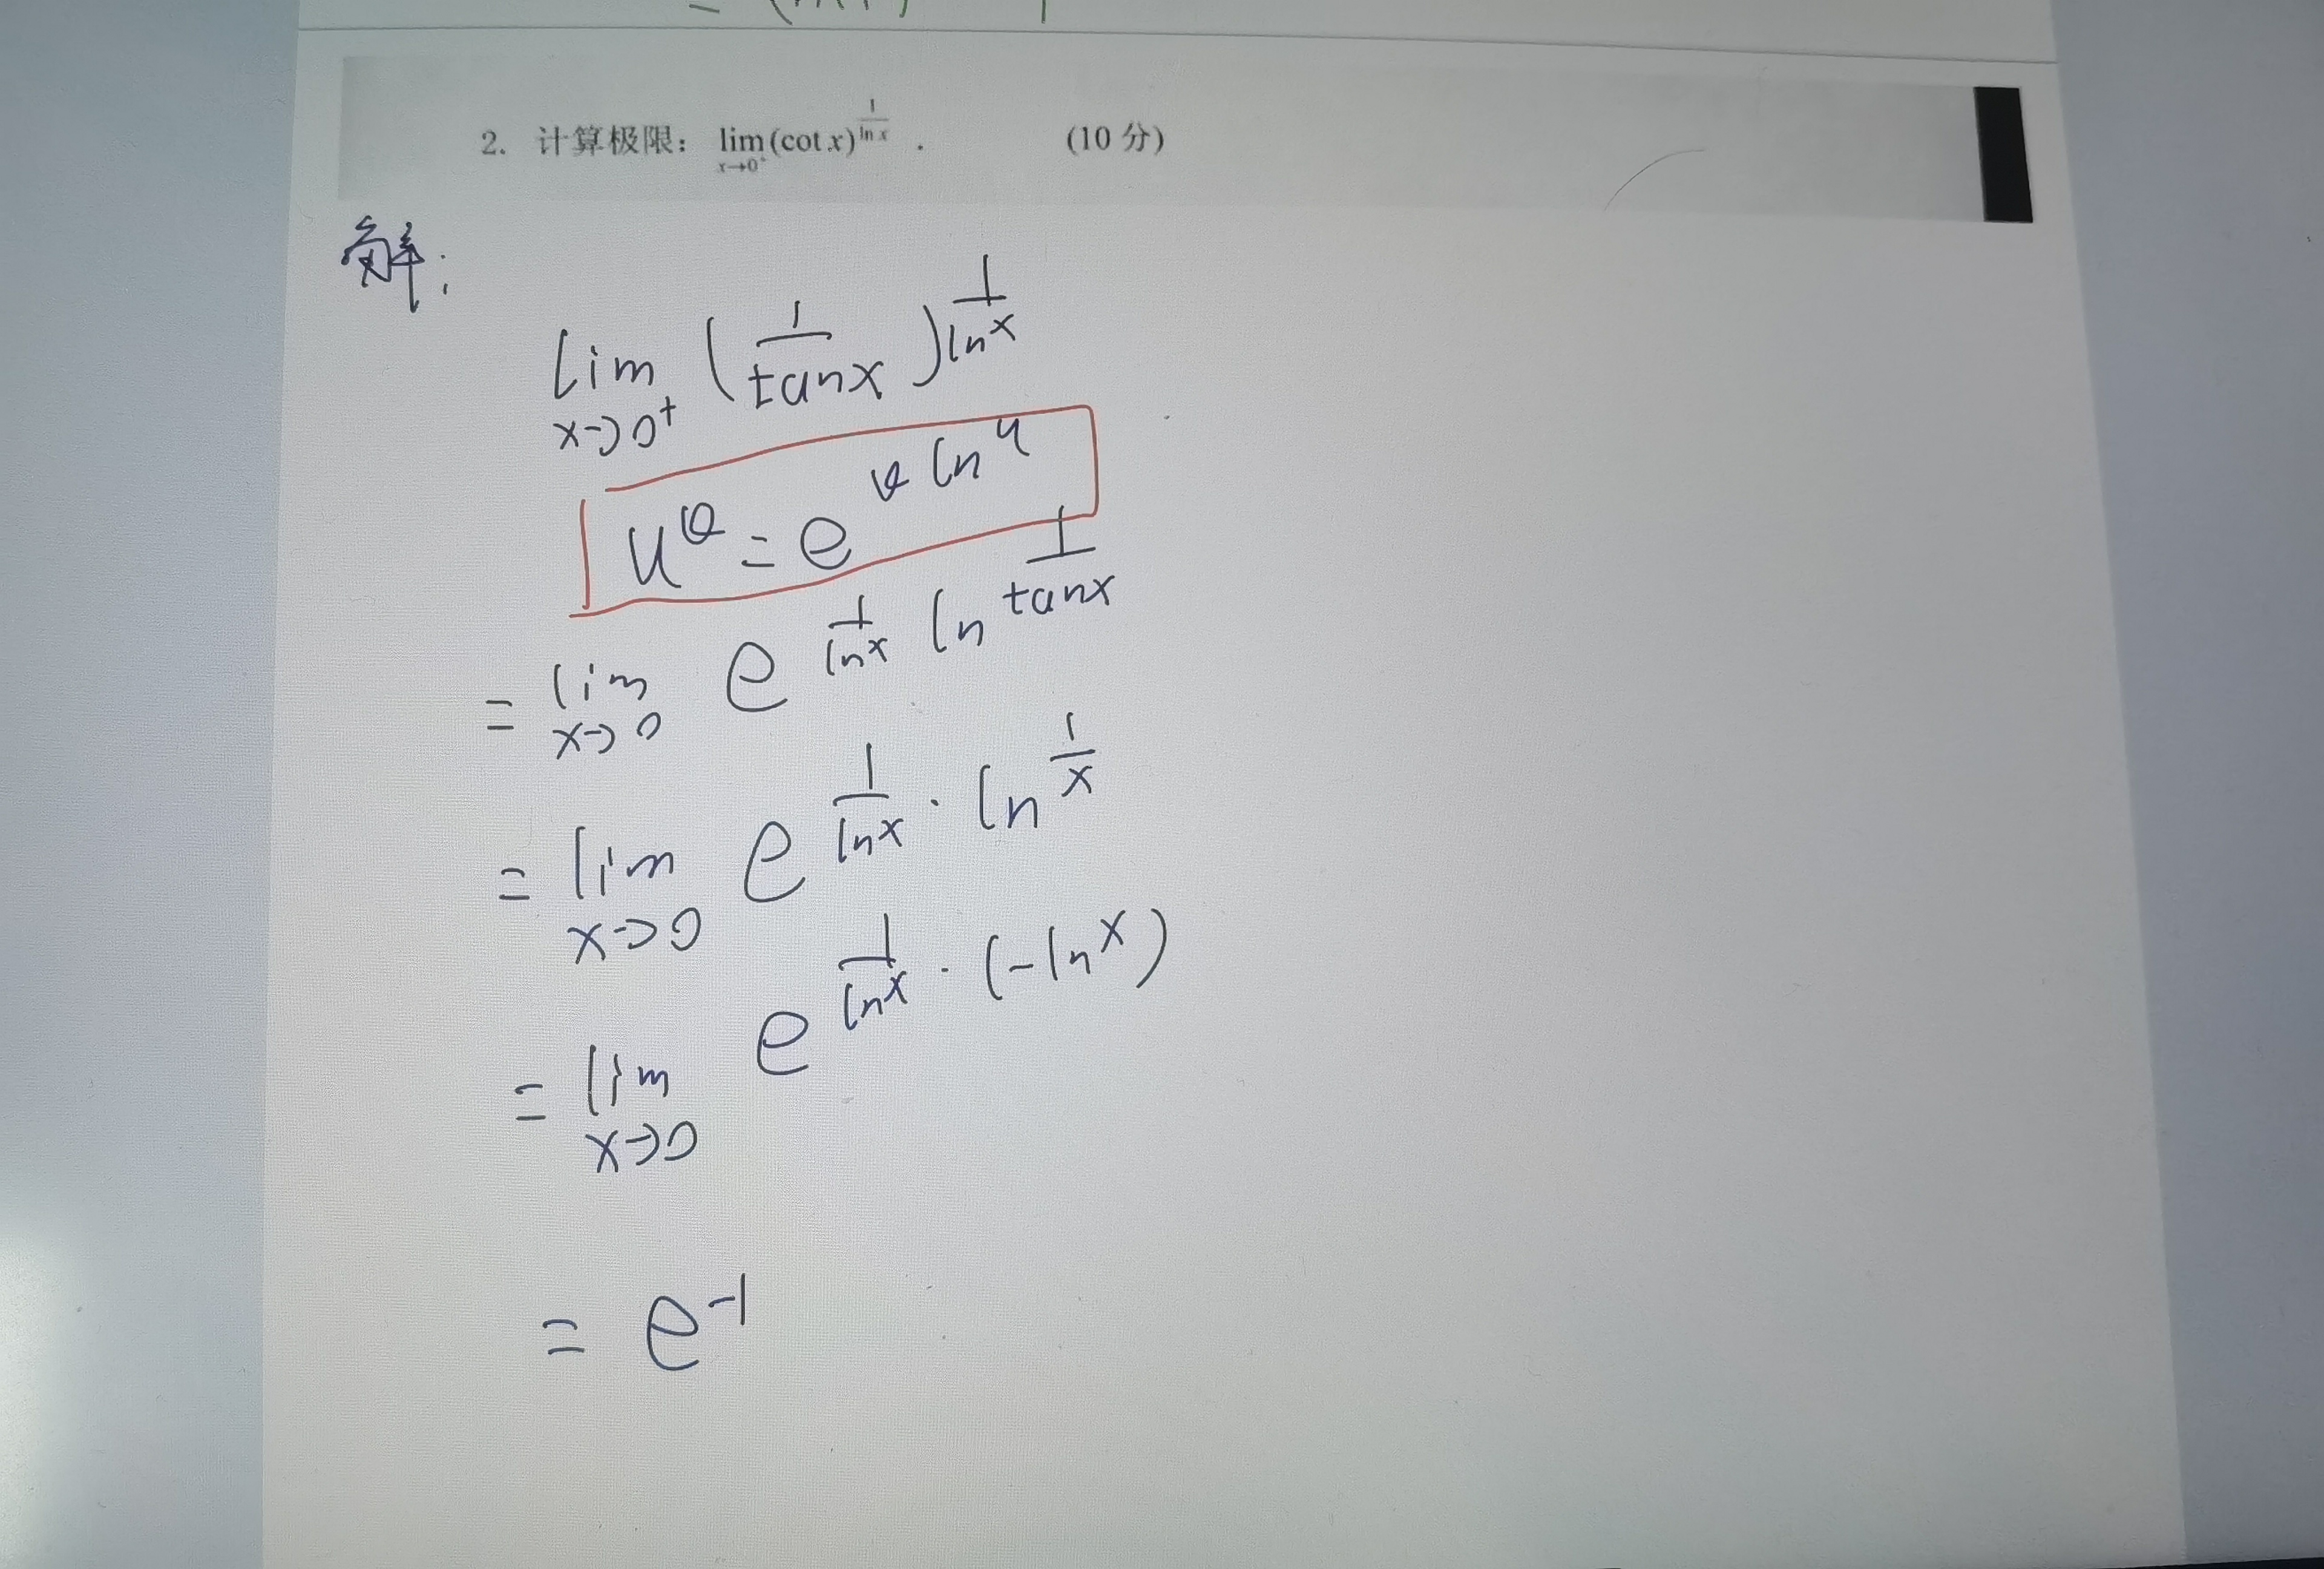 2. 计算极限: lim x→0⁺ (cot x)^(1/ln x) . (10 分)
解:
lim x→0⁺ (1/tanx)^(1/lnx)
u^v = e^(v ln u)
= lim x→0 e^(1/lnx ln 1/tanx)
= lim x→0 e^(1/lnx · ln 1/x)
= lim x→0 e^(1/lnx · (-lnx))
= e^(-1)